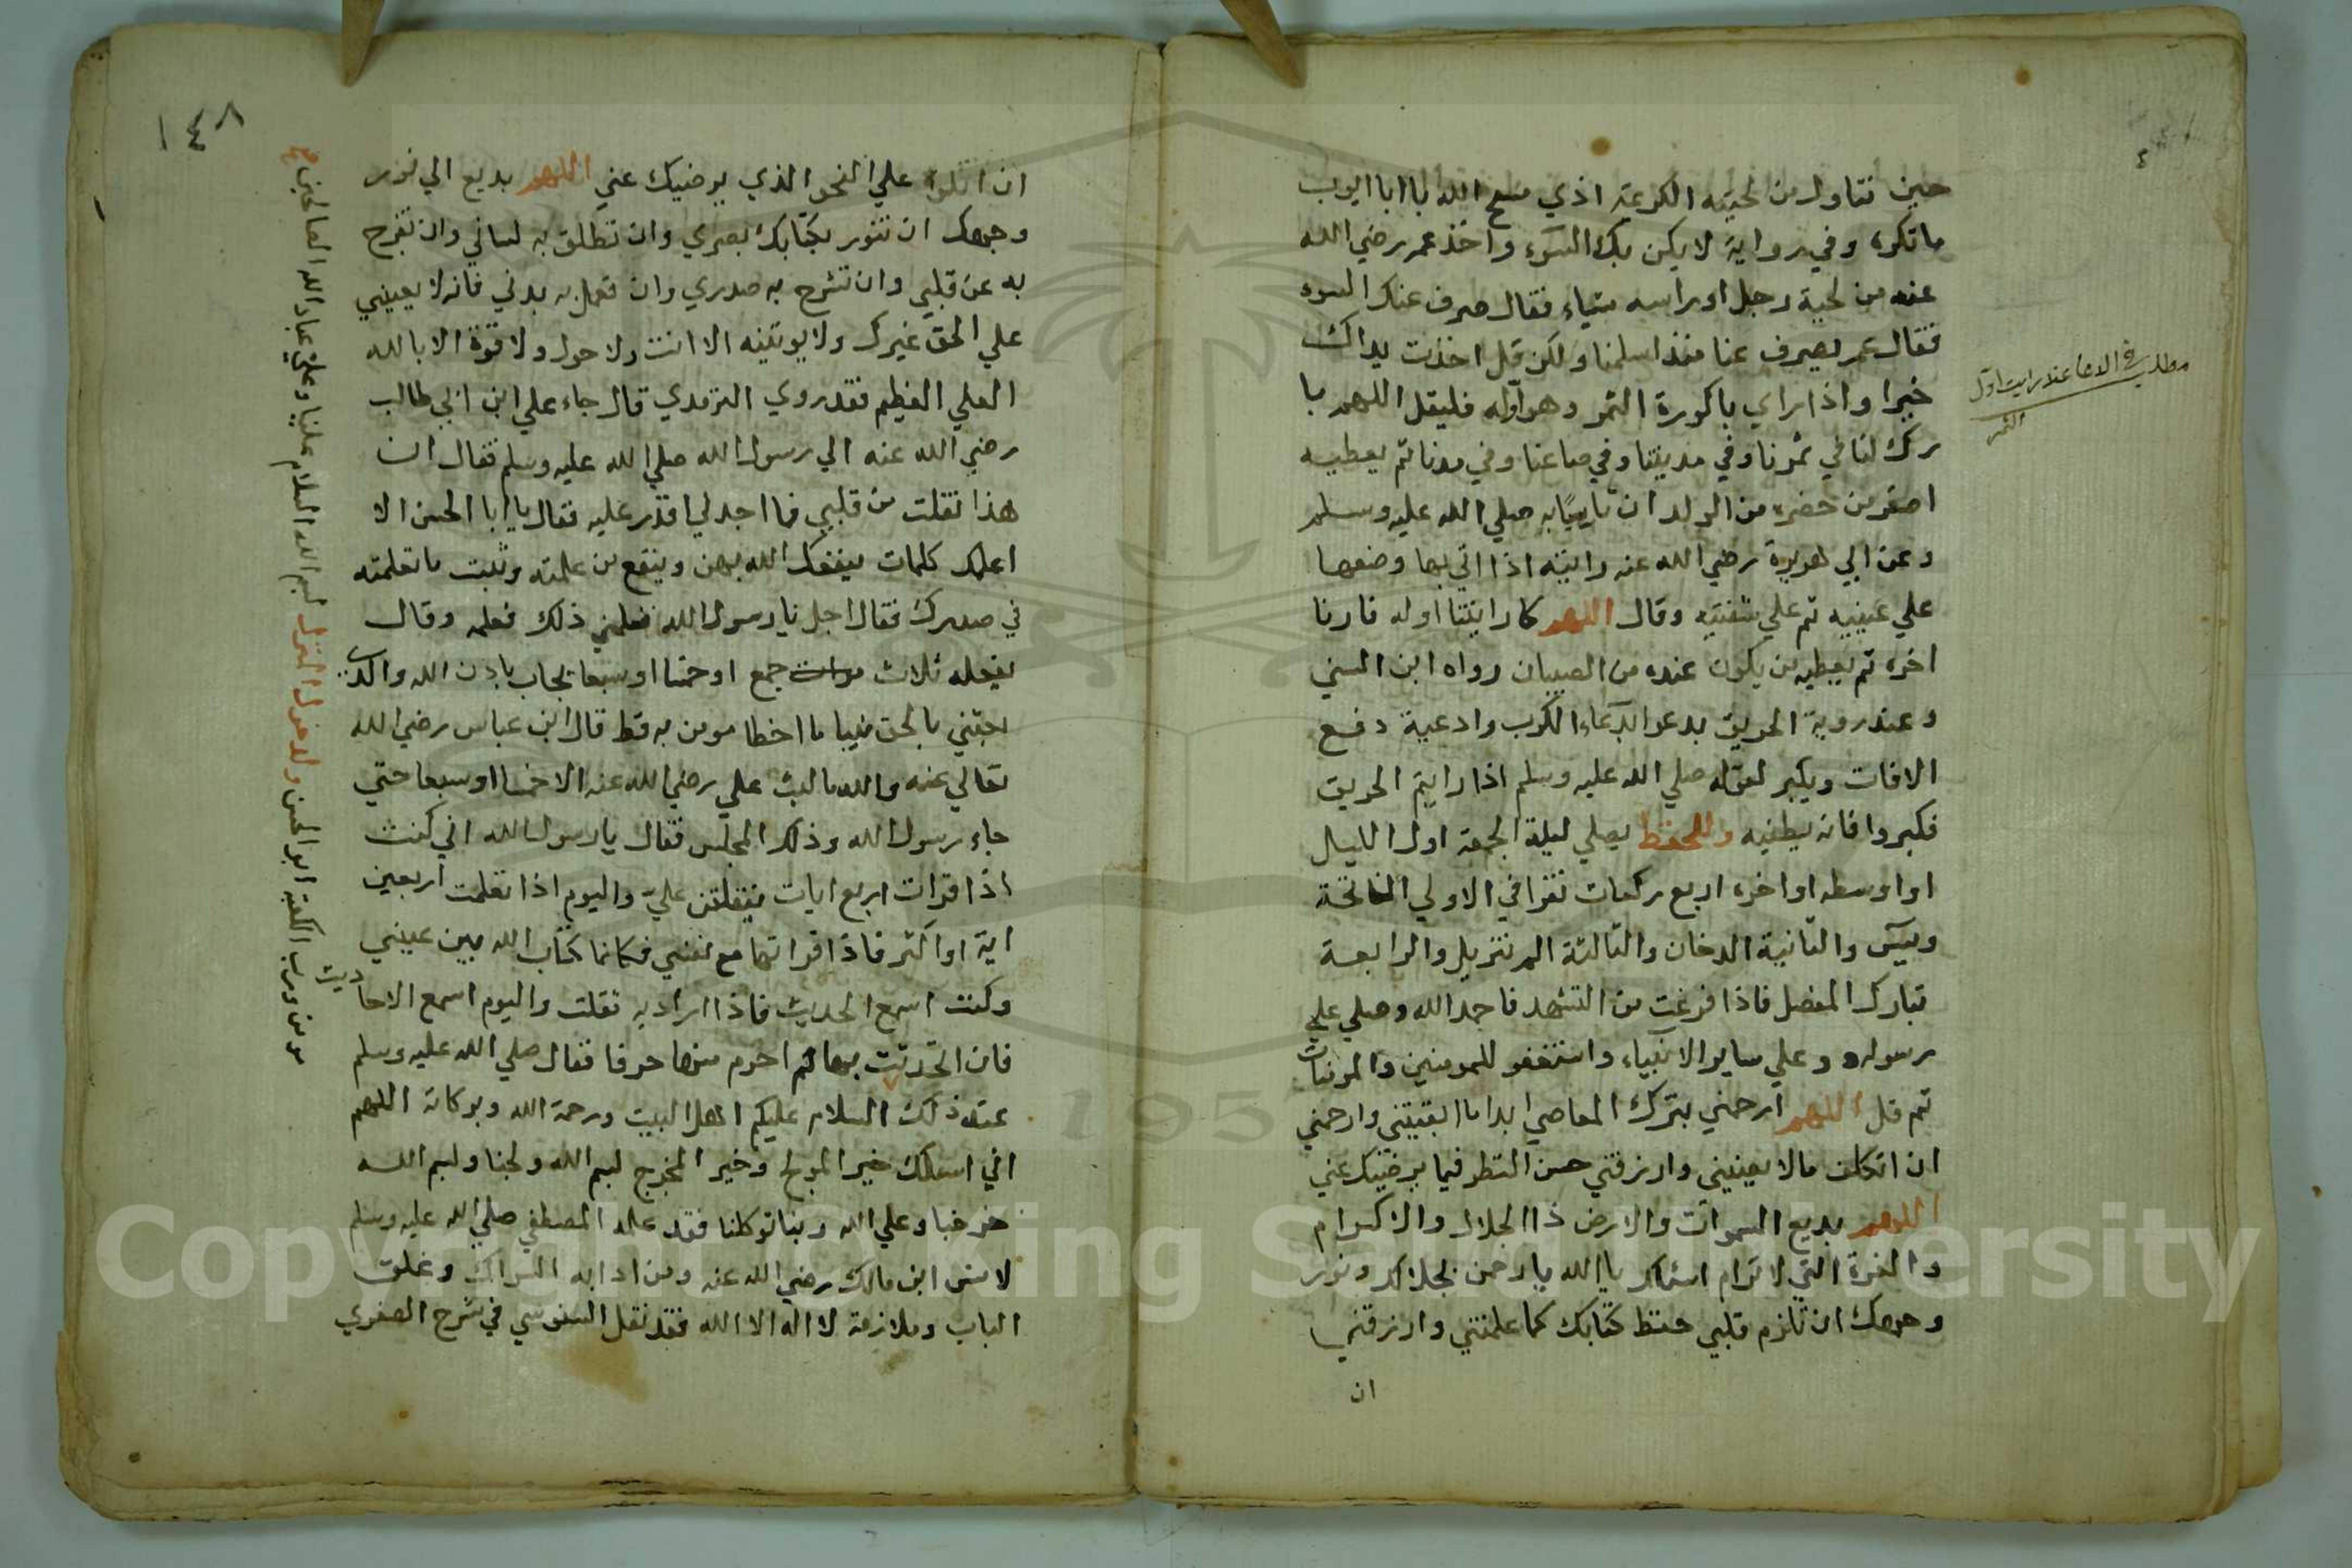 حين تناول من لحيته الكريمة اذي مسح الله بابا ايوب
ما تكره وفي رواية لا يكن بك السوء واخذ عمر رضي الله
عنه من لحية رجل او راسه شياء فقال صرف عنك السوء
فقال عمر يصرف عنا منذ اسلمنا ولكن قل اخذت يداك
خيرا واذا راي باكورة الثمر وهو اوله فليقل اللهم با
رك لنا في ثمرنا وفي مدينتنا وفي صاعنا وفي مدنا ثم يعطيه
اصغر من حضره من الولد ان تاسيا به صلي الله عليه وسلم
وعن ابي هريرة رضي الله عنه رايته اذا اتي بها وضعها
علي عينيه ثم علي شفتيه وقال اللهم كما رايتنا اوله فارنا
اخره ثم يعطيه من يكون عنده من الصبيان رواه ابن السني
وعند روية الحريق يدعو الدعاء الكرب وادعية دفع
الافات ويكبر لقوله صلي الله عليه وسلم اذا رايتم الحريق
فكبروا فانه يطفيه وللحفظ يصلي ليلة الجمعة اول الليل
او اوسطه او اخره اربع ركعات تقرا في الاولي الفاتحة
ويس والثانية الدخان والثالثة الم تنزيل والرابعة
تبارك المفصل فاذا فرغت من التشهد فاحمد الله وصلي علي
رسوله وعلي ساير الانبياء واستغفر للمومنين والمومنات
ثم قل اللهم ارحمني بترك المعاصي ابدا ما ابقيتني وارحمني
ان اتكلف ما لا يعنيني وارزقني حسن النظر فيما يرضيك عني
اللهم بديع السموات والارض ذا الجلال والاكرام
والعزة التي لا ترام اسئلك يا الله يا رحمن بجلالك ونور
وجهك ان تلزم قلبي حفظ كتابك كما علمتني وارزقني
ان
مطلب في الدعا عند رايت اول
الثمر
١٤٨
ان اتلوه علي النحو الذي يرضيك عني اللهم بديع الي نور
وجهك ان تنور بكتابك بصري وان تطلق به لساني وان تفرج
به عن قلبي وان تشرح به صدري وان تعمل به بدني فانه لا يعينني
علي الحق غيرك ولا يوتينه الا انت ولا حول ولا قوة الا بالله
العلي العظيم فقد روي الترمدي قال جاء علي ابن ابي طالب
رضي الله عنه الي رسول الله صلي الله عليه وسلم فقال ان
هذا تفلت من قلبي فما اجد لي اقدر عليه فقال يا ابا الحسن الا
اعلمك كلمات ينفعك الله بهن وينفع من علمته وثبت ما تعلمته
في صدرك فقال اجل يا رسول الله فعلمني ذلك فعلمه وقال
يفعله ثلاث جمع او خمسا او سبعا يجاب باذن الله والذي
بعثني بالحق نبيا ما اخطا مومن به قط قال ابن عباس رضي الله
تعالي عنه والله ما لبث علي رضي الله عنه الا خمسا او سبعا حتي
جاء رسول الله وذلك المجلس فقال يا رسول الله اني كنت
اذا قرات اربع ايات يتفلتن علي واليوم اذا تعلمت اربعين
اية او اكثر فاذا قراتها مع نفسي فكانما كتاب الله بين عيني
وكنت اسمع الحديث فاذا اراد به تفلت واليوم اسمع الاحاديث
فان اتحدثت بها لم اخرم منها حرفا فقال صلي الله عليه وسلم
عند ذلك السلام عليكم اهل البيت ورحمة الله وبركاته اللهم
اني اسئلك خير المولج وخير المخرج بسم الله ولجنا وبسم الله
خرجنا وعلي الله ربنا توكلنا فقد علمه المصطفي صلي الله عليه وسلم
لانس ابن مالك رضي الله عنه ومن ادابه السواك وغلق
الباب وملازمة لا اله الا الله فقد نقل السنوسي في شرح الصغري
مومن ورب الكعبة ابو الحسن ولدخول المنزل بسم الله السلام علينا وعلي عباد الله الصالحين